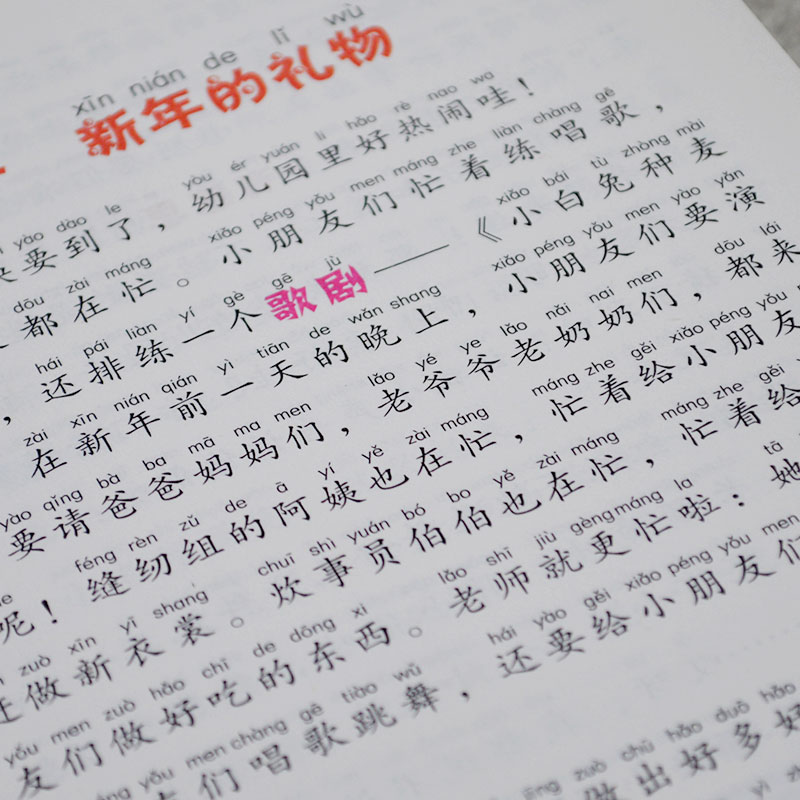 xīn nián de lǐ wù
新年的礼物
yào dào le yòu ér yuán li hǎo rè nao wa
要到了，幼儿园里好热闹哇！
dōu zài máng xiǎo péng yǒu men máng zhe liàn chàng gē
都在忙。小朋友们忙着练唱歌，
hái pái liàn yí gè gē jù xiǎo bái tù zhòng mài
，还排练一个歌剧——《小白兔种麦
zài xīn nián qián yì tiān de wǎn shang xiǎo péng yǒu men yào yǎn
在新年前一天的晚上，小朋友们要演
yào qǐng bà ba mā ma men lǎo yé ye lǎo nǎi nai men dōu lái
要请爸爸妈妈们，老爷爷老奶奶们，都来
ne féng rèn zǔ de ā yí yě zài máng máng zhe gěi xiǎo péng
呢！缝纫组的阿姨也在忙，忙着给小朋友
zuò xīn yī shang chuī shì yuán bó bo yě zài máng máng zhe gěi
做新衣裳。炊事员伯伯也在忙，忙着给
yǒu men zuò hǎo chī de dōng xi lǎo shī jiù gèng máng la tā
友们做好吃的东西。老师就更忙啦：她
yǒu men chàng gē tiào wǔ hái yào gěi xiǎo péng yǒu men
友们唱歌跳舞，还要给小朋友们
zuò chū hǎo duō hǎo
做出好多好